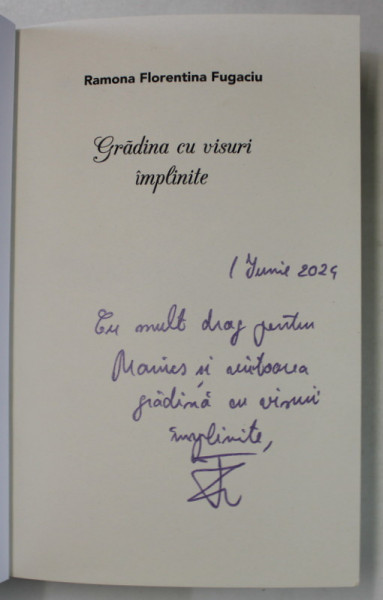 Ramona Florentina Fugaciu
Grădina cu visuri
împlinite
1 Iunie 2024
Cu mult drag pentru
și viitoarea
grădină cu visuri
împlinite,